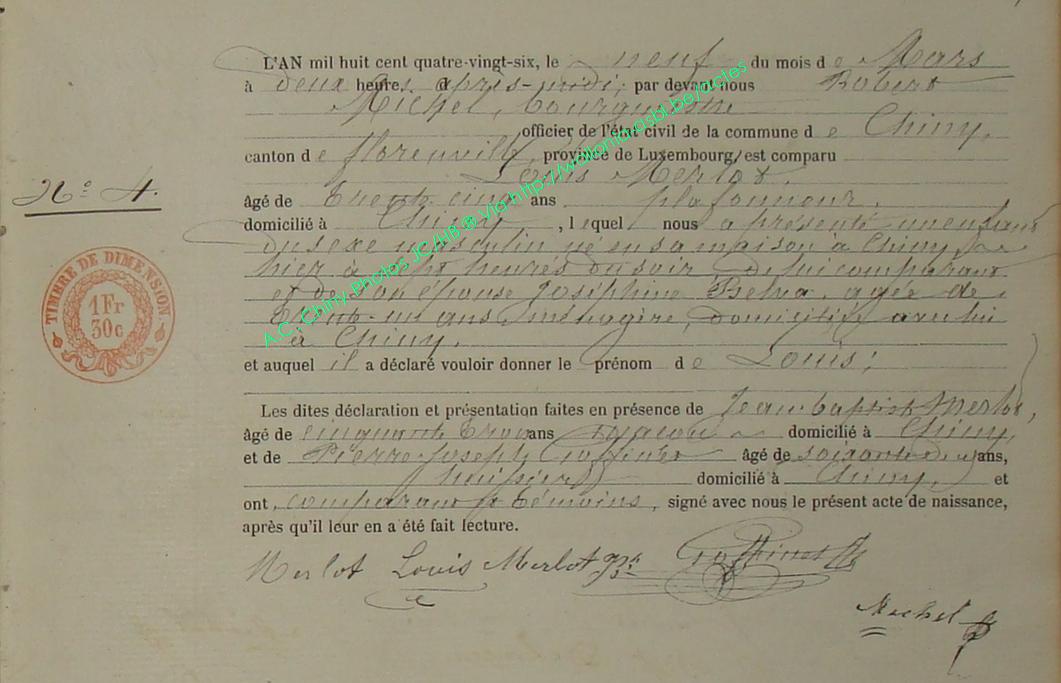 L'AN mil huit cent quatre-vingt-six, le neuf du mois de Mars
à deux heures après-midi, par devant nous Robert
Michel, bourgmestre
officier de l'état civil de la commune de Chiny,
canton de florenville, province de Luxembourg, est comparu
Louis Merlot,
N° 4.
âgé de trente cinq ans plafonneur,
domicilié à Chiny, lequel nous a présenté un enfant
du sexe masculin né en sa maison à Chiny
hier à heures du soir, de lui comparant
et de son épouse Joséphine âgée de
ans, ménagère, domiciliée avec lui
à Chiny.
et auquel il a déclaré vouloir donner le prénom de Louis;
TIMBRE DE DIMENSION
1 Fr
30 c
Les dites déclaration et présentation faites en présence de Jean-baptiste Merlot,
âgé de cinquante trois ans maçon domicilié à Chiny,
et de Pierre Joseph Goffinet âgé de soixante deux ans,
domicilié à Chiny, et
ont, comparant et témoins, signé avec nous le présent acte de naissance,
après qu'il leur en a été fait lecture.
Merlot Louis Merlot Goffinet
Michel
A.C. Chiny-Photos JC/HB ® Via http://wallonica.asbl.be/actes